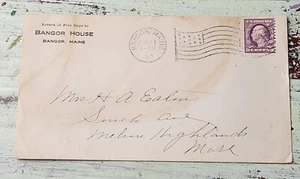 Return in Five Days to
BANGOR HOUSE
BANGOR, MAINE
BANGOR, MAINE
Mrs H A Eaton
South Ave
Melrose Highlands
Mass